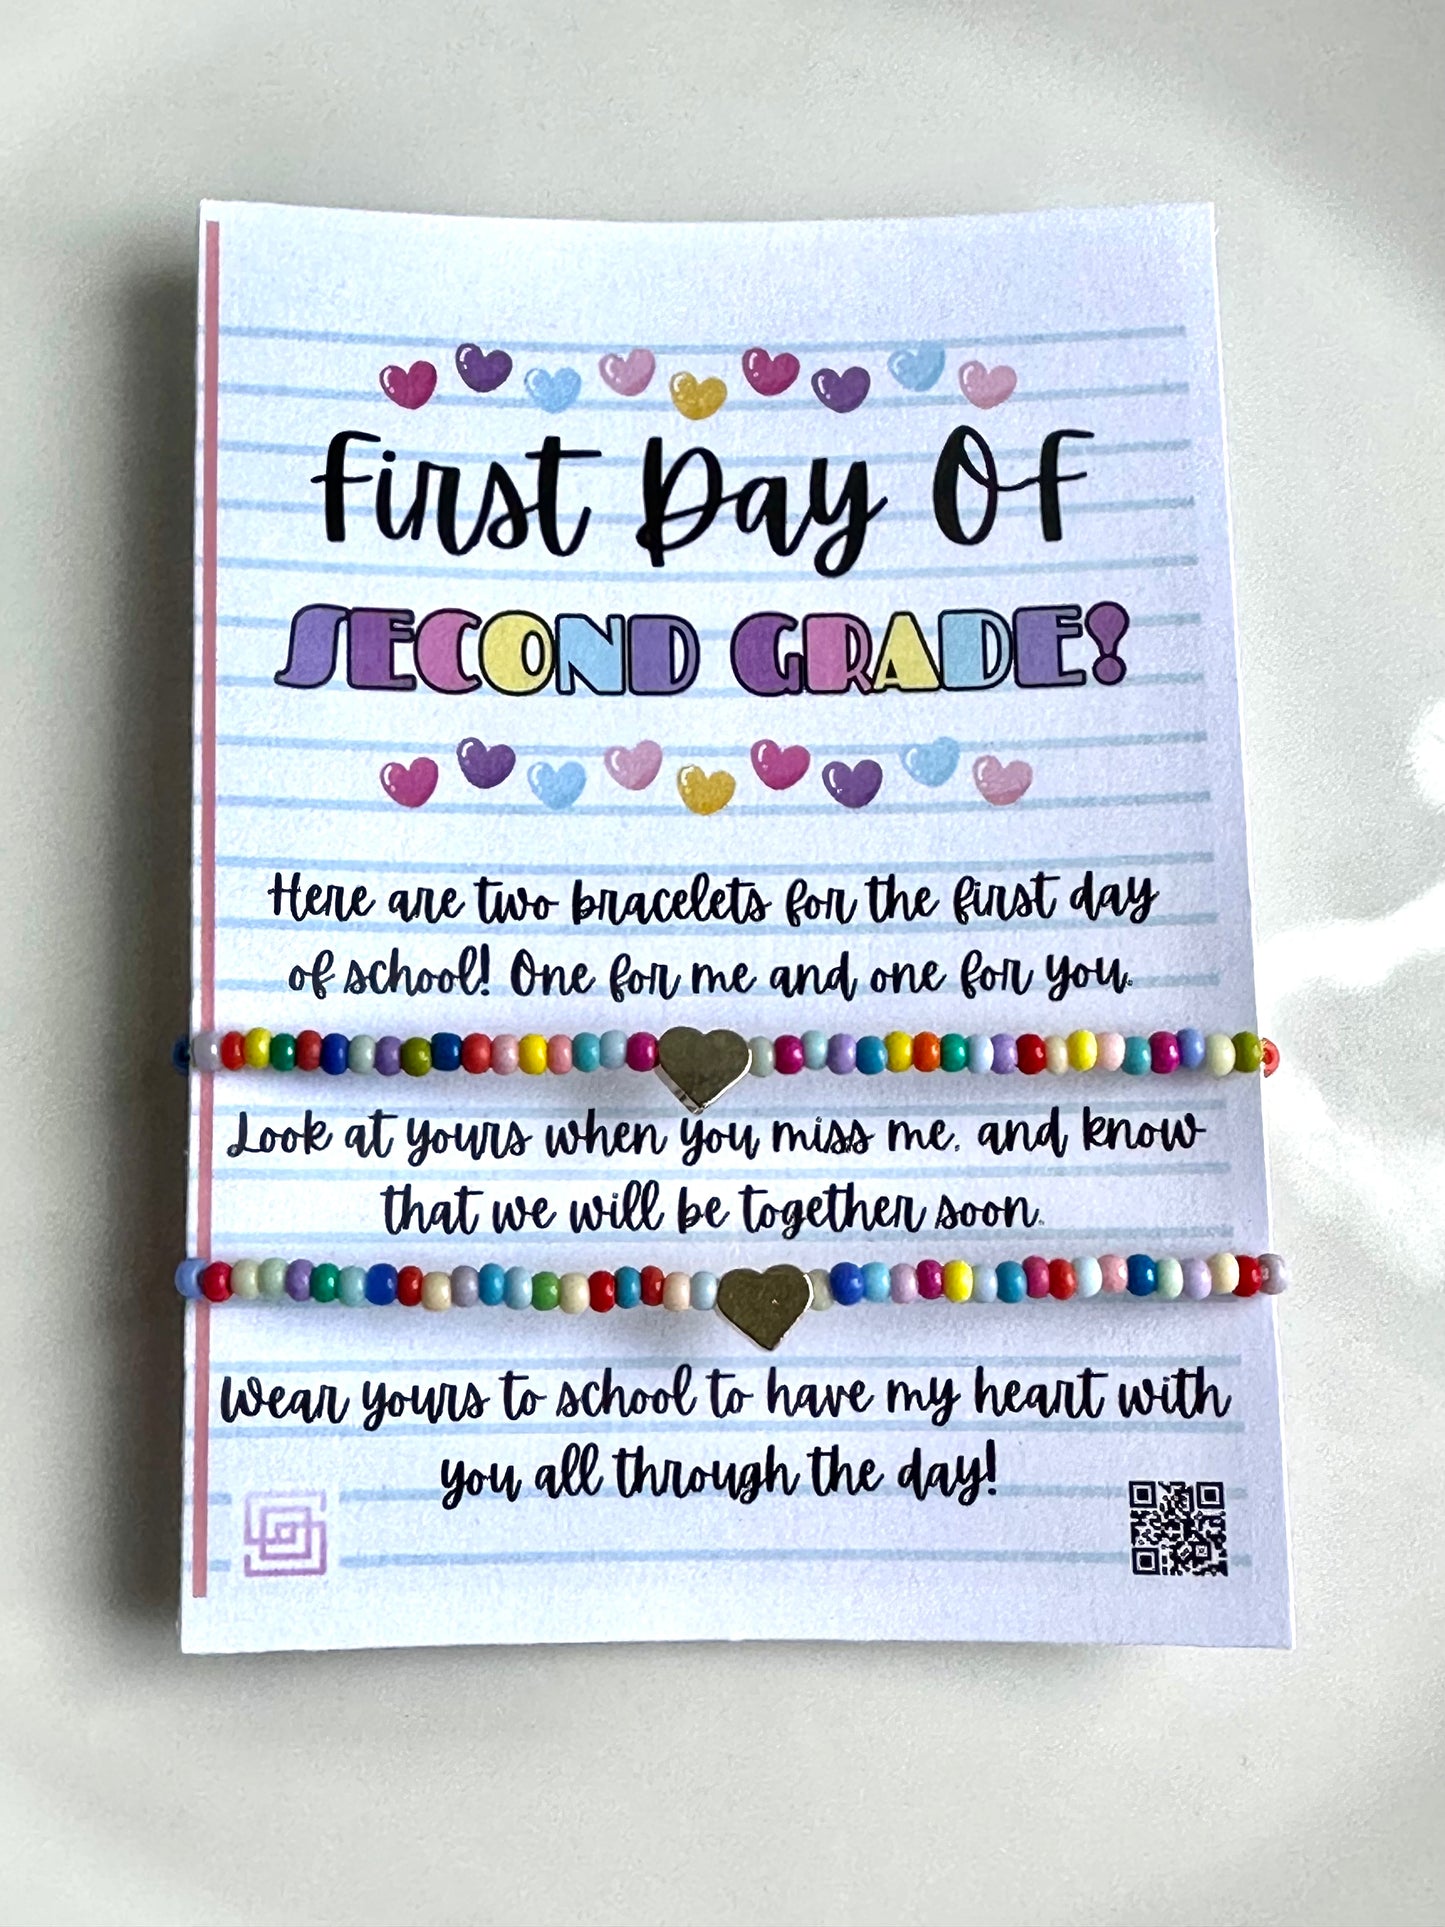 First Day Of
SECOND GRADE!
Here are two bracelets for the first day
of school! One for me and one for you.
Look at yours when you miss me, and know
that we will be together soon.
Wear yours to school to have my heart with
you all through the day!